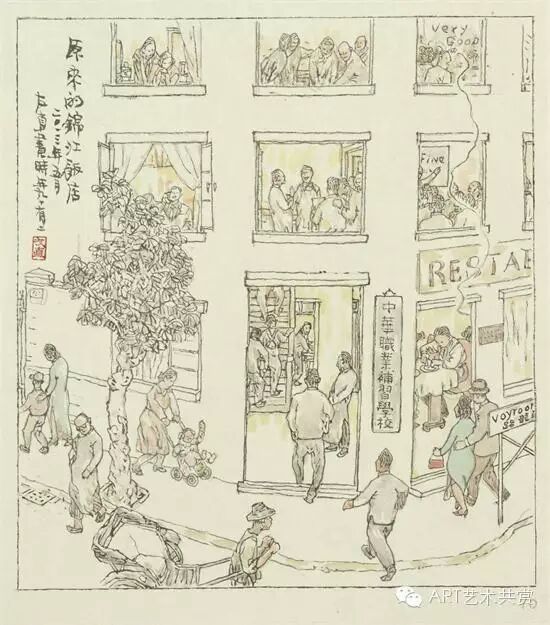 原來的錦江飯店
二〇一三年五月
very
GOOD
FINE
RESTA
中華職業補習學校
ART艺术共赏